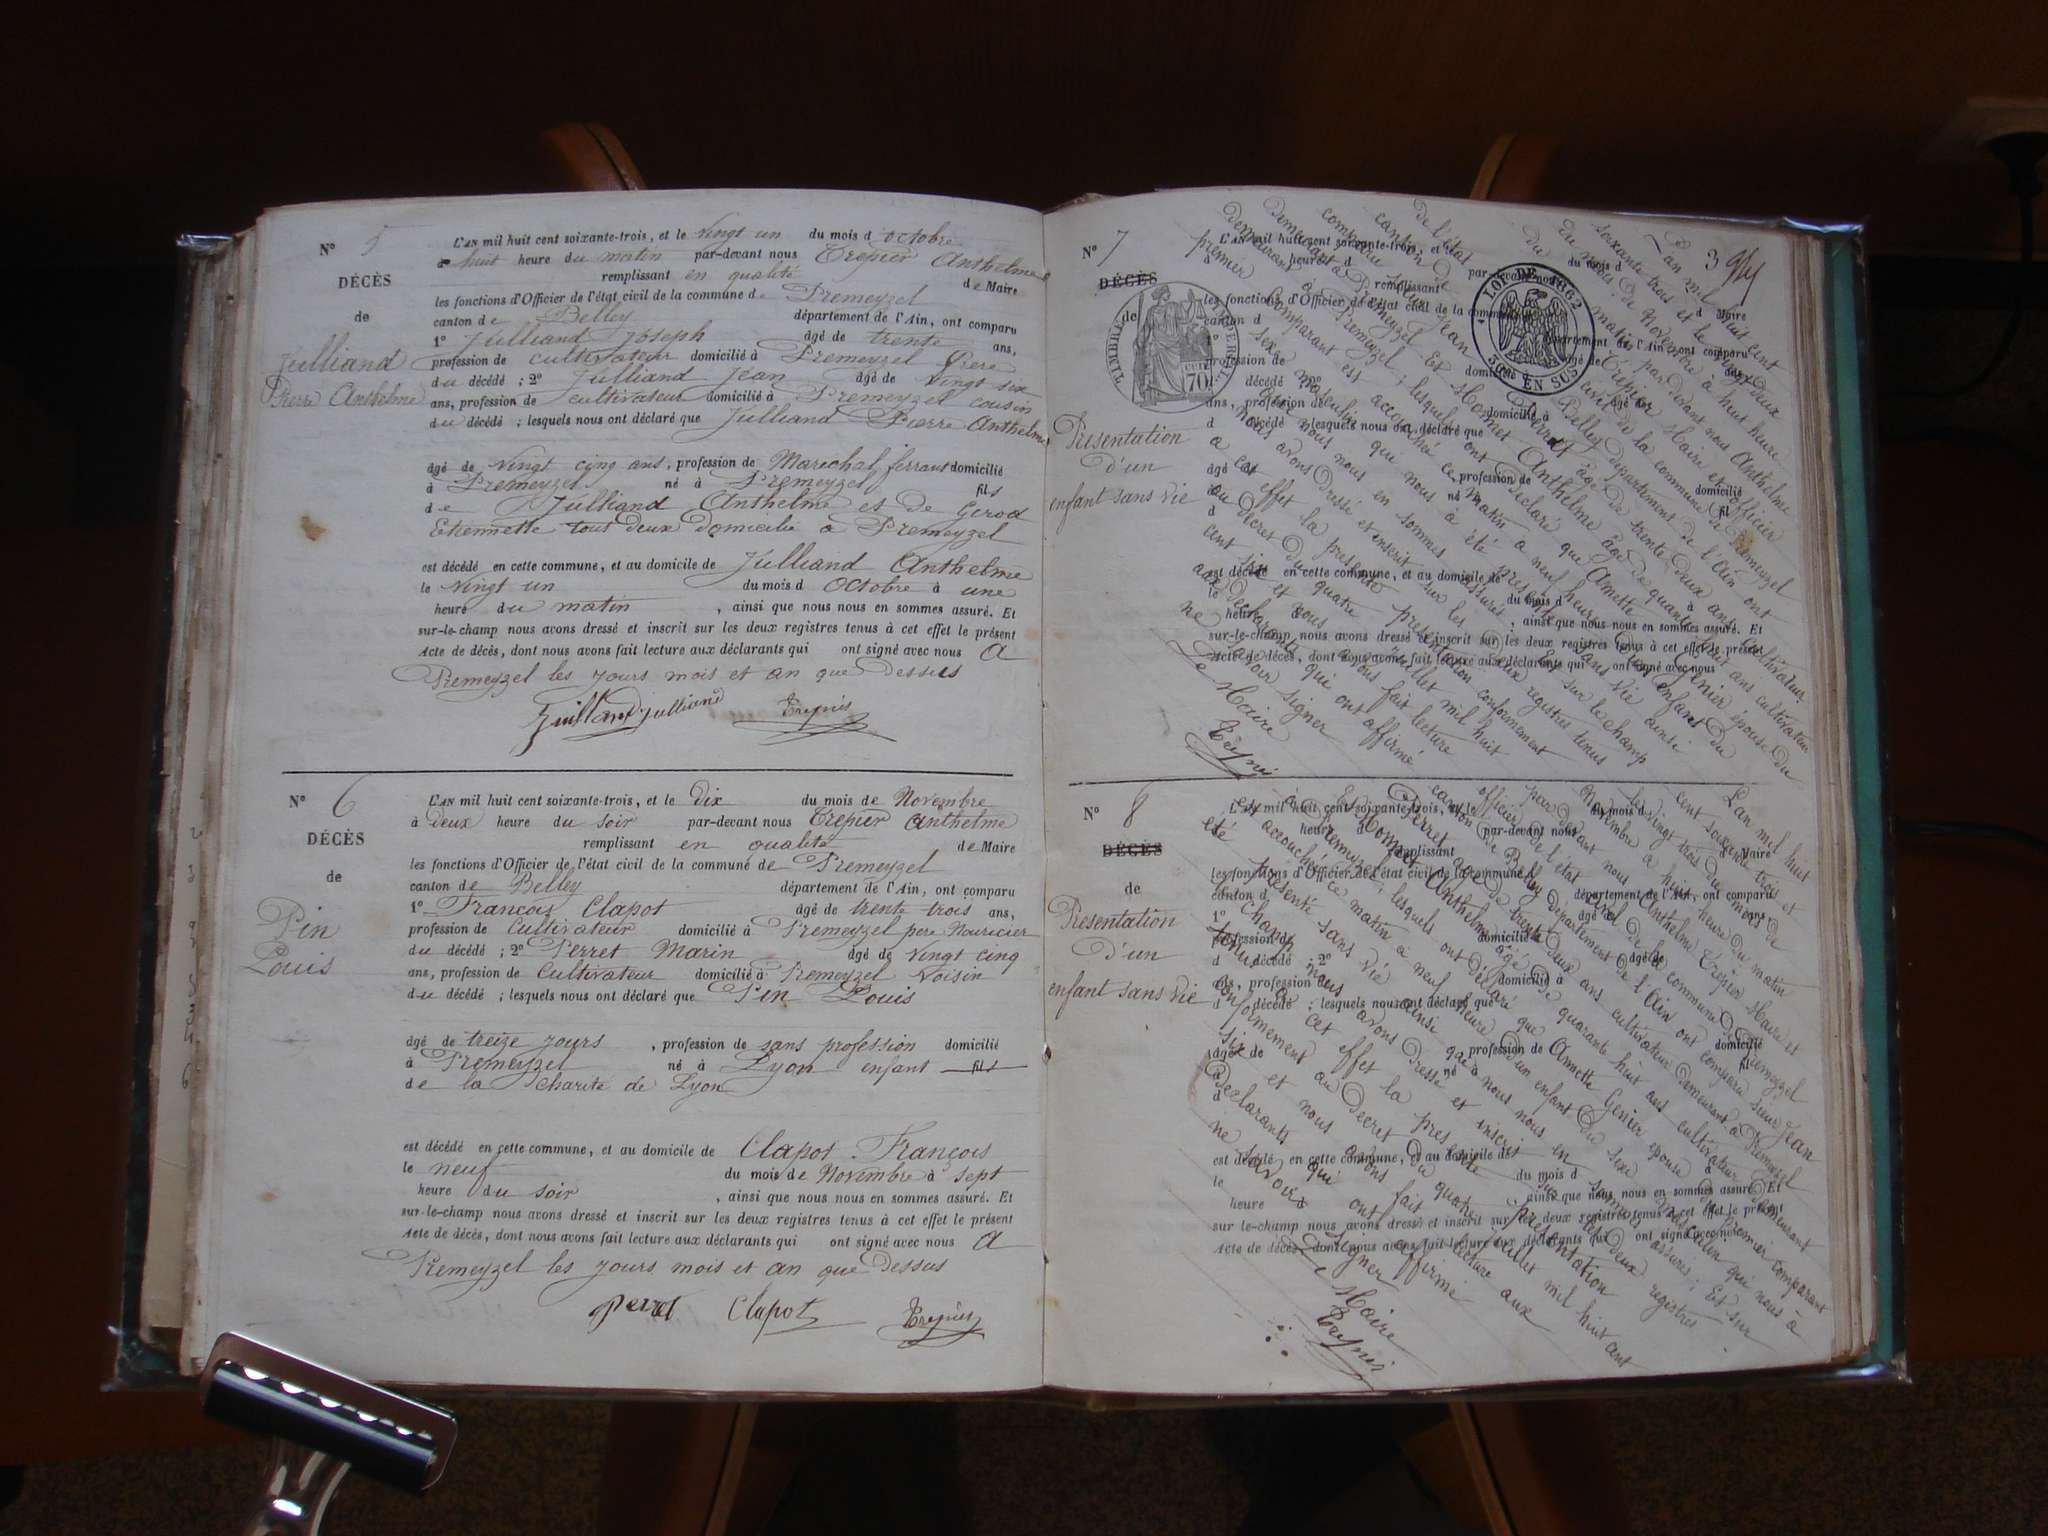 N° 5
DÉCÈS
de
Julliand
Pierre Anthelme
L'AN mil huit cent soixante-trois, et le vingt un du mois d octobre
à huit heure du matin par-devant nous Trepier Anthelme
remplissant en qualité de Maire
les fonctions d'Officier de l'état civil de la commune de Premeyzel
canton de Belley département de l'Ain, ont comparu
1° Julliand Joseph âgé de trente ans,
profession de cultivateur domicilié à Premeyzel frere
du décédé ; 2° Julliand Jean âgé de vingt six
ans, profession de cultivateur domicilié à Premeyzel cousin
du décédé ; lesquels nous ont déclaré que Julliand Pierre Anthelme
âgé de vingt cinq ans, profession de Marechal ferrant domicilié
à Premeyzel né à Premeyzel fils
de Julliand Anthelme et de Gerod
Etiennette tous deux domicilie a Premeyzel
est décédé en cette commune, et au domicile de Julliand Anthelme
le vingt un du mois d octobre à une
heure du matin , ainsi que nous nous en sommes assuré. Et
sur-le-champ nous avons dressé et inscrit sur les deux registres tenus à cet effet le présent
Acte de décès, dont nous avons fait lecture aux déclarants qui ont signé avec nous A
Premeyzel les jours mois et an que dessus
julliand Trepier
N° 6
DÉCÈS
de
Pin
Louis
L'AN mil huit cent soixante-trois, et le dix du mois de Novembre
à deux heure du soir par-devant nous Trepier Anthelme
remplissant en qualité de Maire
les fonctions d'Officier de l'état civil de la commune de Premeyzel
canton de Belley département de l'Ain, ont comparu
1° Francois Clapot âgé de trente trois ans,
profession de cultivateur domicilié à Premeyzel pere Nouricier
du décédé ; 2° Perret Marin âgé de vingt cinq
ans, profession de Cultivateur domicilié à Premeyzel Voisin
du décédé ; lesquels nous ont déclaré que Pin Louis
âgé de treize jours , profession de sans profession domicilié
à Premeyzel né à Lyon enfant fils
de la Charite de Lyon
est décédé en cette commune, et au domicile de Clapot François
le neuf du mois de Novembre à sept
heure du soir , ainsi que nous nous en sommes assuré. Et
sur-le-champ nous avons dressé et inscrit sur les deux registres tenus à cet effet le présent
Acte de décès, dont nous avons fait lecture aux déclarants qui ont signé avec nous A
Premeyzel les jours mois et an que dessus
Perret Clapot Trepier
3
N° 7
DÉCÈS
de
TIMBRE IMPERIAL
70
LOI DE 1862
EN SUS
Presentation
d'un
enfant sans vie
L'an mil huit cent
soixante trois et le vingt deux
du mois de Novembre à huit heure
du matin par devant nous Anthelme
Trepier Maire et officier
de l'état civil de la commune de Premeyzel
canton de Belley departement de l'Ain ont
comparu Jean Perret âgé de trente deux ans cultivateur
demeurant à Premeyzel Et Homet Anthelme âgé de quarante huit ans cultivateur
demeurant à Premeyzel ; lesquels ont déclaré que Annette Genier épouse du
premier comparant est accouchée ce matin à neuf heure d'un enfant du
sexe masculin qui nous à été presenté sans vie ainsi
que nous nous en sommes assurés Et sur le champ
nous avons dressé et inscrit sur les deux registres tenus
a cet effet la presente presentation conformement
au decret du quatre juillet mil huit
cent six et nous avons fait lecture
aux declarants qui ont affirmé
ne savoir signer
Le Maire
Trepier
N° 8
DÉCÈS
de
Presentation
d'un
enfant sans vie
L'an mil huit
cent soixante trois et
le vingt trois du mois de
Novembre à huit heure du matin
par devant nous Anthelme Trepier Maire et
officier de l'état civil de la commune de Premeyzel
canton de Belley département de l'Ain ont comparu sieur Jean
Perret âgé de trente deux ans cultivateur demeurant à Premeyzel
Et Homet Anthelme âgé de quarante huit ans cultivateur demeurant
à Premeyzel ; lesquels ont déclaré que Annette Genier epouse du premier comparant
est accouchée ce matin à neuf heure d'un enfant du sexe masculin qui nous à
eté presenté sans vie ainsi que nous nous en sommes assurés ; Et sur
le champ nous avons dressé et inscrit sur les deux registres
tenus a cet effet la presente presentation
conformement au decret du quatre juillet mil huit cent
six et nous avons fait lecture aux
declarants qui ont affirmé
ne savoir signer
Le Maire
Trepier